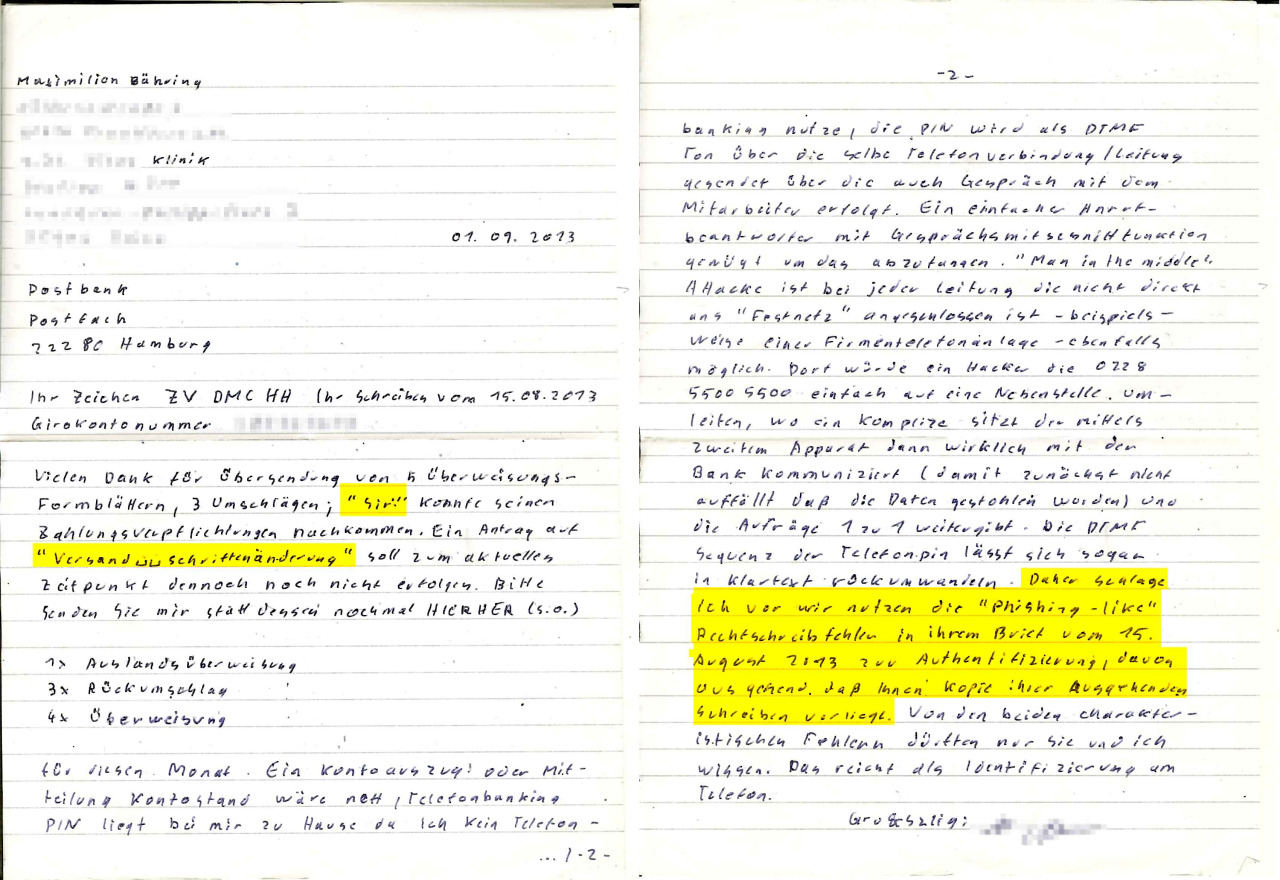 Maximilian Bähring
Klinik
01. 09. 2013
Postbank
Postfach
22280 Hamburg
Ihr Zeichen ZV DMC HH Ihr Schreiben vom 15.08.2013
Girokontonummer
Vielen Dank für Übersendung von 5 Überweisungs-
Formblättern, 3 Umschlägen; "Sir" konnte seinen
Zahlungsverpflichtungen nachkommen. Ein Antrag auf
"Versand schriftenänderung" soll zum aktuellen
Zeitpunkt dennoch noch nicht erfolgen. Bitte
senden Sie mir statt dessen nochmal HIERHER (s.o.)
1x Auslandsüberweisung
3x Rückumschlag
4x Überweisung
für diesen Monat. Ein Kontoauszug oder Mit-
teilung Kontostand wäre nett, Telefonbanking
PIN liegt bei mir zu Hause da ich kein Telefon-
... /-2-
-2-
banking nutze, die PIN wird als DTMF
Ton über die selbe Telefonverbindung/Leitung
gesendet über die auch Gespräch mit dem
Mitarbeiter erfolgt. Ein einfacher Anruf-
beantworter mit Gesprächsmitschnittfunktion
genügt um das abzufangen. "Man in the middle"
Attacke ist bei jeder Leitung die nicht direkt
ans "Festnetz" angeschlossen ist - beispiels-
weise einer Firmentelefonanlage - ebenfalls
möglich. Dort würde ein Hacker die 0228
5500 5500 einfach auf eine Nebenstelle um-
leiten, wo ein Komplize sitzt der mittels
zweitem Apparat dann wirklich mit der
Bank kommuniziert (damit zunächst nicht
auffällt daß die Daten gestohlen worden) und
die Aufträge 1 zu 1 weitergibt. Die DTMF
Sequenz der Telefonpin lässt sich sogar
in Klartext rückumwandeln. Daher schlage
ich vor wir nutzen die "Phishing-like"
Rechtschreibfehler in ihrem Brief vom 15.
August 2013 zur Authentifizierung, davon
ausgehend, daß Ihnen Kopie ihrer Ausgehenden
Schreiben vorliegt. Von den beiden charakter-
istischen Fehlern dürften nur Sie und ich
wissen. Das reicht als Identifizierung am
Telefon.